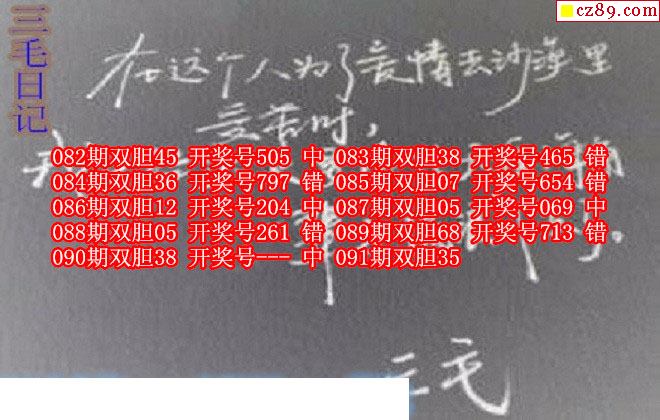 cz89.com
三毛日记
在这个人为了爱情去沙漠里
受苦时,
082期双胆45 开奖号505 中 083期双胆38 开奖号465 错
084期双胆36 开奖号797 错 085期双胆07 开奖号654 错
086期双胆12 开奖号204 中 087期双胆05 开奖号069 中
088期双胆05 开奖号261 错 089期双胆68 开奖号713 错
090期双胆38 开奖号--- 中 091期双胆35
三毛